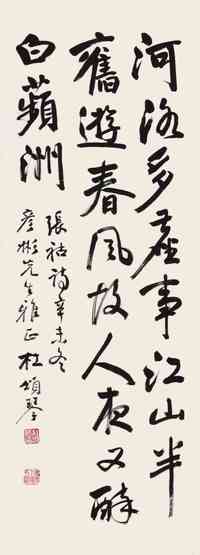 河洛多塵事江山半
舊遊春風故人夜又醉
白蘋洲
張祜詩辛未冬
彥彬先生雅正杜頌琴